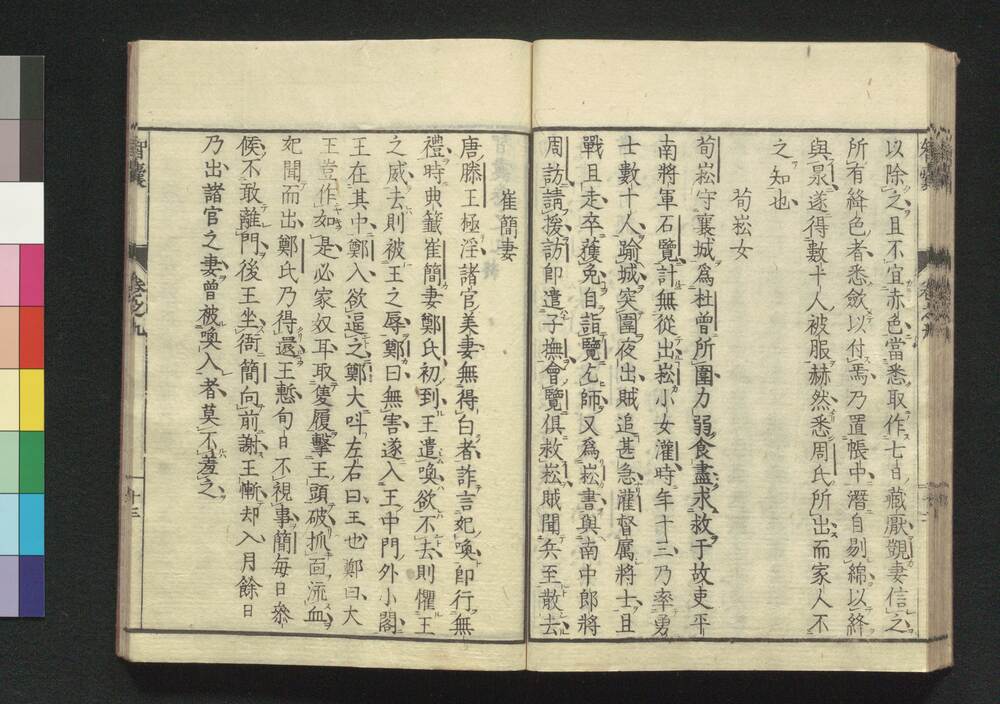 以除之且不宜赤色當悉取作七日藏厭覡妻信之
所有絳色者悉斂以付焉乃置帳中潛自剔綿以絳
與泉遂得數十人被服赫然悉周氏所出而家人不
之知也
荀崧女
荀崧守襄城爲杜曾所圍力弱食盡求救于故吏平
南將軍石覽計無從出崧小女灌時年十三乃率勇
士數十人踰城突圍夜出賊追甚急灌督厲將士且
戰且走卒獲免自詣覽乞師又爲崧書與南中郎將
周訪請援訪即遣子撫會覽俱救崧賊聞兵至散去
崔簡妻
唐滕王極淫諸官美妻無得白者詐言妃喚即行無
禮時典籤崔簡妻鄭氏初到王遣喚欲不去則懼王
之威去則被王之辱鄭曰無害遂入王中門外小閣
王在其中鄭入欲逼之鄭大呌左右曰王也鄭曰大
王豈作如是必家奴耳取隻履擊王頭破抓面流血
妃聞而出鄭氏乃得還王慙旬日不視事簡每日參
候不敢離門後王坐衙簡向前謝王慚却入月餘日
乃出諸官之妻曾被喚入者莫不羞之
智囊
卷之九
十三